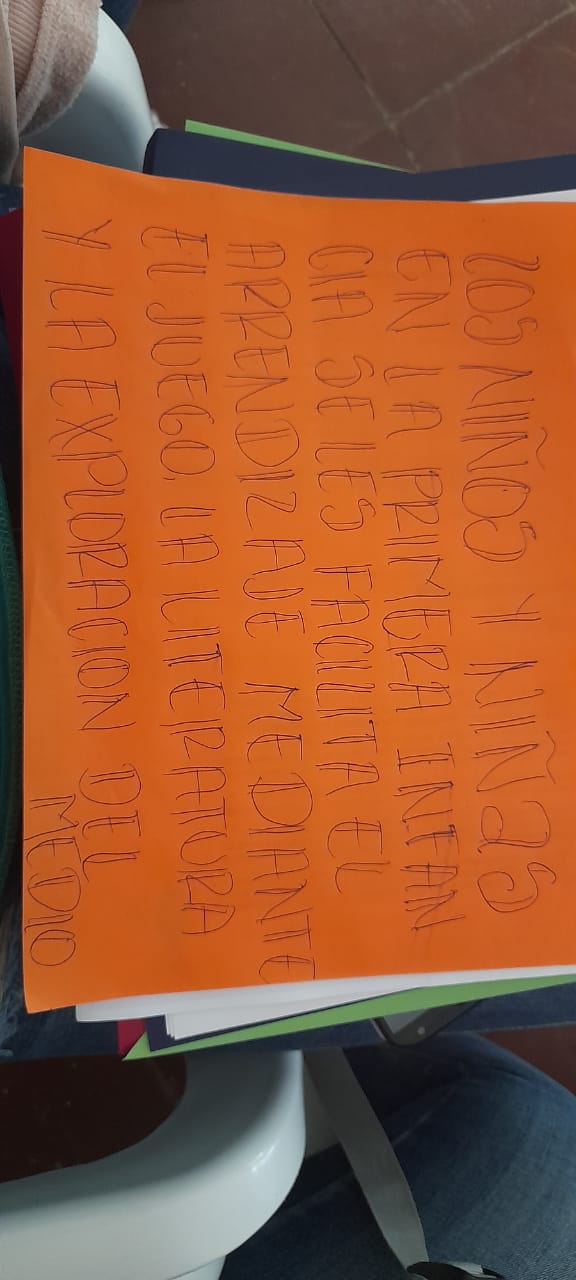 LOS NIÑOS Y NIÑAS
EN LA PRIMERA INFAN
CIA SE LES FACILITA EL
APRENDIZAJE MEDIANTE
EL JUEGO, LA LITERATURA
Y LA EXPLORACION DEL
MEDIO